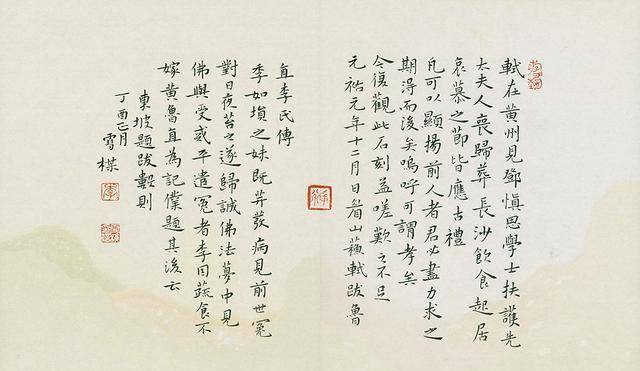 軾在黃州見鄧慎思學士扶護先
太夫人喪歸葬長沙飲食起居
哀慕之節皆應古禮
凡可以顯揚前人者君必盡力求之
期得而後矣嗚呼可謂孝矣
今復觀此石刻益嗟歎之不足
元祐元年十二月日眉山蘇軾跋魯
直李氏傳
季如塤之妹既笄發病見前世冤
對日夜苦之遂歸誠佛法夢中見
佛與受戒平遣冤者李因蔬食不
嫁黃魯直為記僕題其後云
東坡題跋數則
丁酉正月